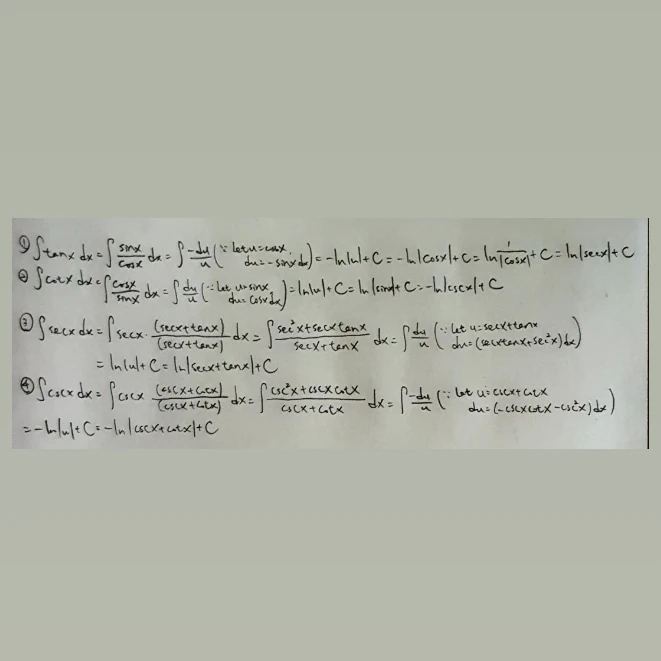 ① ∫tanx dx = ∫ sinx/cosx dx = ∫ -du/u (∵ let u=cosx, du=-sinx dx) = -ln|u|+C = -ln|cosx|+C = ln 1/|cosx| + C = ln|secx|+C
② ∫cotx dx = ∫ cosx/sinx dx = ∫ du/u (∵ let u=sinx, du=cosx dx) = ln|u|+C = ln|sinx|+C = -ln|cscx|+C
③ ∫secx dx = ∫ secx · (secx+tanx)/(secx+tanx) dx = ∫ sec²x+secxtanx/secx+tanx dx = ∫ du/u (∵ let u=secx+tanx, du=(secxtanx+sec²x)dx)
= ln|u|+C = ln|secx+tanx|+C
④ ∫cscx dx = ∫ cscx (cscx+cotx)/(cscx+cotx) dx = ∫ csc²x+cscxcotx/cscx+cotx dx = ∫ -du/u (∵ let u=cscx+cotx, du=(-cscxcotx-csc²x)dx)
= -ln|u|+C = -ln|cscx+cotx|+C